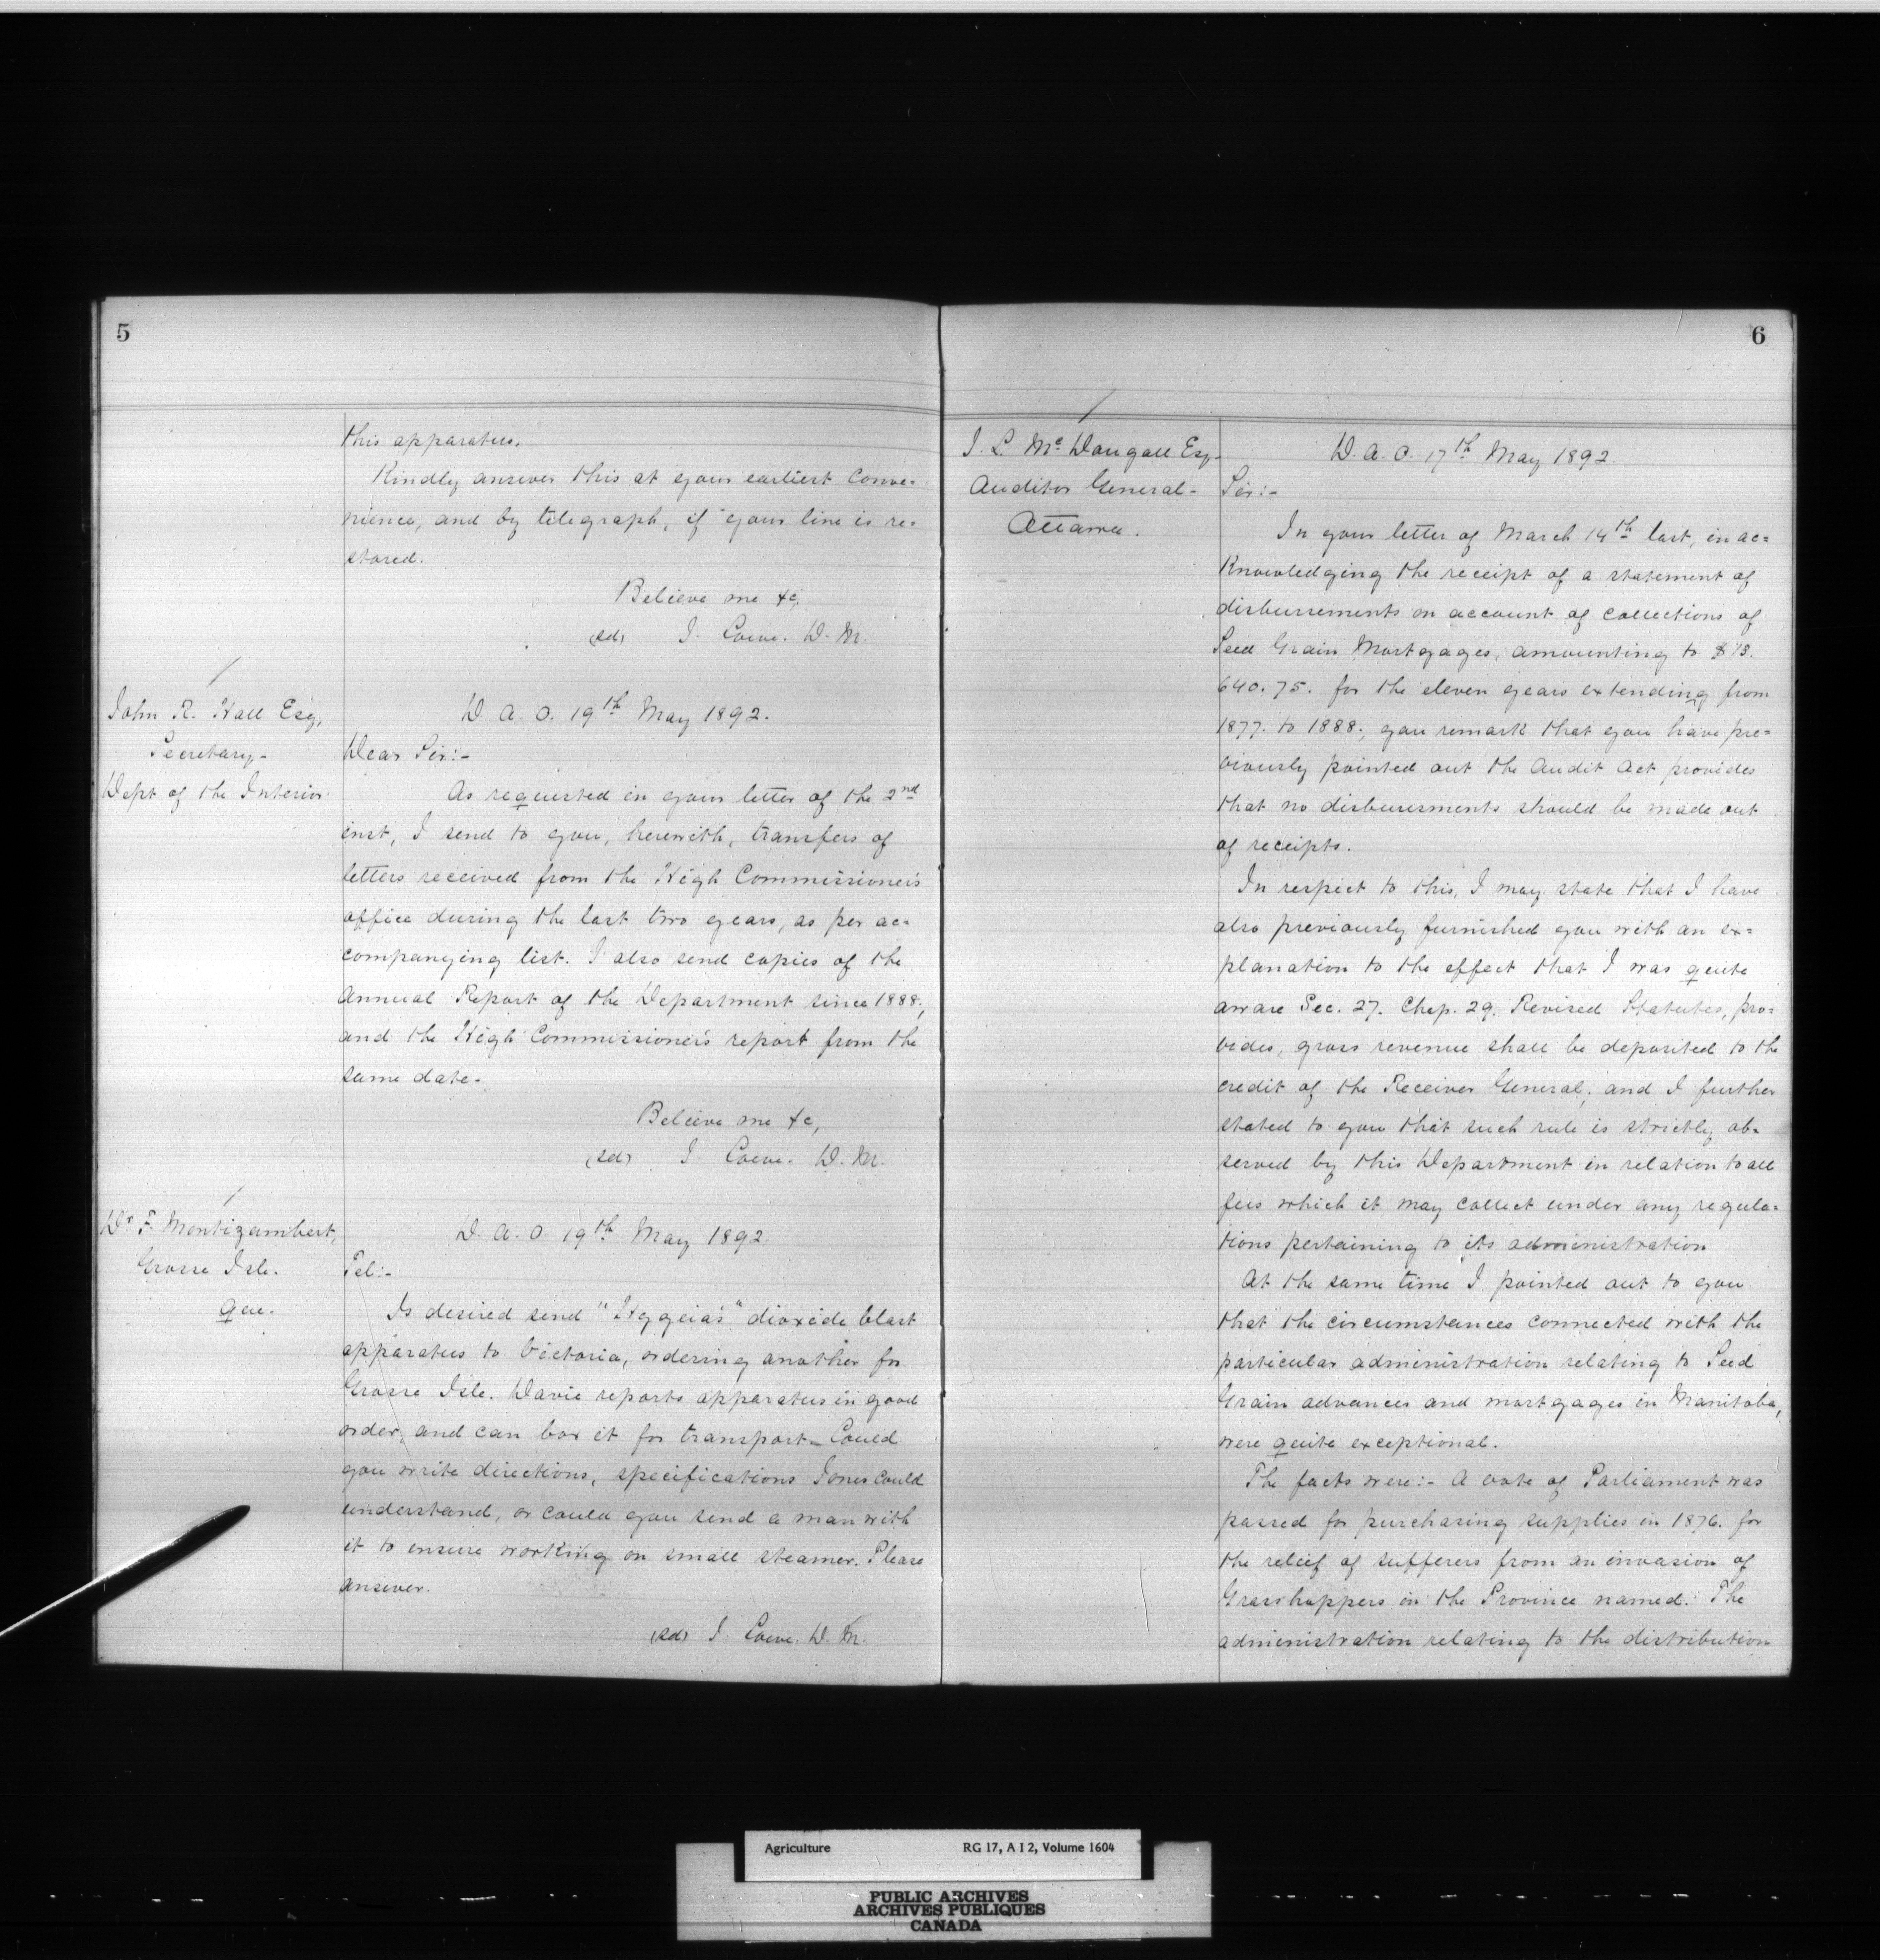 5
this apparatus.
Kindly answer this at your earliest conve=
nience, and by telegraph, if your line is re=
stored.
Believe me &c,
(sd) J. Lowe. D. M.
John R. Hall Esq,
Secretary-
Dept of the Interior.
D. A. O. 19th May 1892.
Dear Sir:-
As requested in your letter of the 2nd
inst, I send to you, herewith, transfers of
letters received from the High Commissioner's
office during the last two years, as per ac=
companying list. I also send copies of the
Annual Report of the Department since 1888;
and the High Commissioner's report from the
same date-
Believe me &c,
(sd) J. Lowe. D. M.
Dr F. Montizambert,
Grosse Isle.
Que.
D. A. O. 19th May 1892.
Tel:-
Is desired send "Hygeia's" dioxide blast
apparatus to Victoria, ordering another for
Grosse Isle. Davie reports apparatus in good
order, and can box it for transport- Could
you write directions, specifications Jones could
understand, or could you send a man with
it to ensure working on small steamer. Please
answer.
(sd) J. Lowe. D. M.
6
J. L. McDougall Esq.
Auditor General-
Ottawa.
D. A. O. 17th May 1892.
Sir:-
In your letter of March 14th last, in ac=
knowledging the receipt of a statement of
disbursements on account of collections of
Seed Grain Mortgages, amounting to $13.
640.75. for the eleven years extending from
1877. to 1888., you remark that you have pre=
viously pointed out the Audit Act provides
that no disbursments should be made out
of receipts.
In respect to this, I may state that I have
also previously furnished you with an ex=
planation to the effect that I was quite
aware Sec. 27. Chap. 29. Revised Statutes, pro=
vides, gross revenue shall be deposited to the
credit of the Receiver General; and I further
stated to you that such rule is strictly ob=
served by this Department in relation to all
fees which it may collect under any regula=
tions pertaining to its administration
At the same time I pointed out to you
that the circumstances connected with the
particular administration relating to Seed
Grain advances and mortgages in Manitoba,
were quite exceptional.
The facts were:- A vote of Parliament was
passed for purchasing supplies in 1876. for
the relief of sufferers from an invasion of
Grasshoppers in the Province named. The
administration relating to the distribution
Agriculture RG 17, A I 2, Volume 1604
PUBLIC ARCHIVES
ARCHIVES PUBLIQUES
CANADA